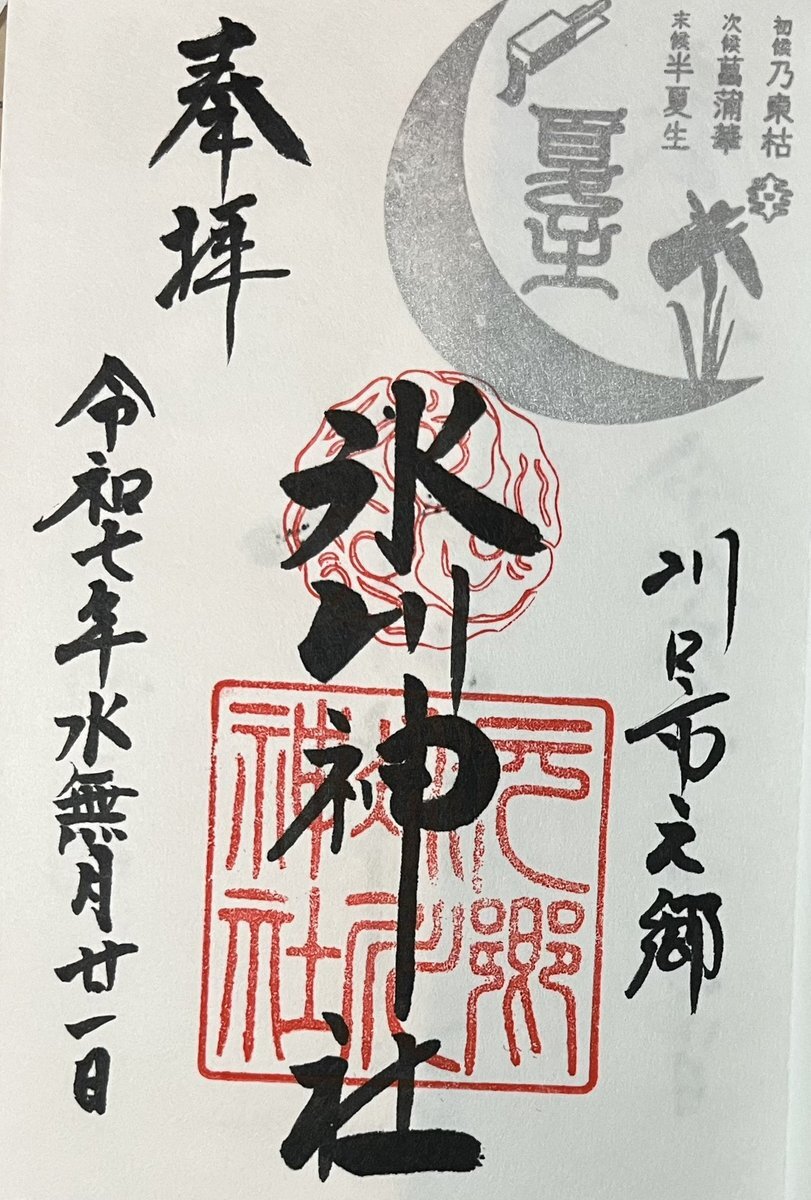 初候乃東枯
次候菖蒲華
末候半夏生
夏至
川口市元郷
氷川神社
奉拝
令和七年水無月廿一日
元郷
神社